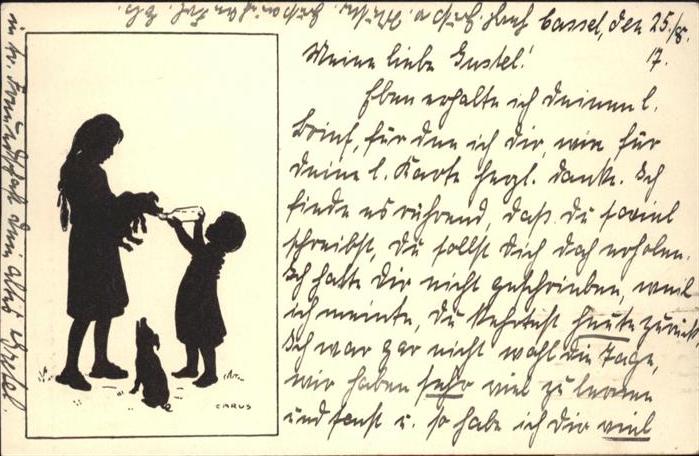 Cassel, den 25./8.
17.
Meine liebe Gustel!
Eben erhalte ich deinen l.
Brief, für den ich dir, wie für
deine l. Karte herzl. danke. Ich
finde es rührend, daß du soviel
schreibst, du sollst dich doch erholen.
Ich hatte dir nicht geschrieben, weil
ich meinte, du kehrtest heute zurück.
Ich war gar nicht wohl die Tage,
wir haben sehr viel zu lernen
und sonst u. so habe ich dir viel
CARUS